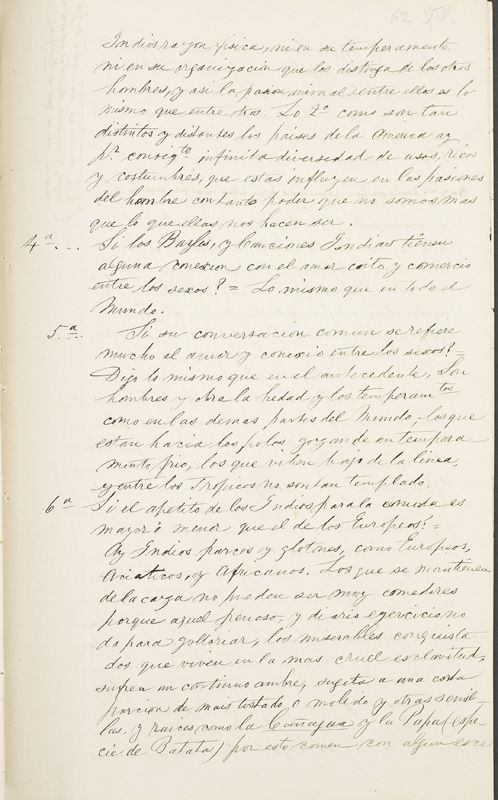 62
Indios razon fisica, ni en su temperamento,
ni en su organizacion que los distinga de los otros
hombres, y asi la pasion animal entre ellos es lo
mismo que entre otros. Lo 2º como son tan
distintos y distantes los paises de la America ay
pr. consigte infinita diversidad de usos, ricos
y costumbres, que estas influyen en las pasiones
del hombre con tanto poder que no somos mas
que lo que ellas nos hacen ser.
4ª... Si los Bayles, y Canciones Indias tienen
alguna conexion con el amor coito, y comercio
entre los sexos? = Lo mismo que en todo el
Mundo.
5ª... Si su conversacion comun se refiere
mucho al amor y conexio entre los sexos? =
Digo lo mismo que en el antecedente, Son
hombres y obra la hedad y los temperamtos
como en las demas partes del Mundo; los que
estan hacia los polos gozan de un tempera
mento frio, los que viven bajo de la linea,
y entre los Tropicos no son tan templado.
6ª Si el apetito de los Indios para la comida es
mayor ó menor que el de los Europeos? =
Ay Indios parcos y glotones, como Europeos,
Aciaticos, y Africanos. Los que se mantienen
de la caza no pueden ser muy comedores
porque aquel penoso, y diario egercicio no
da para golloriar, los miserables conquista
dos que viven en la mas cruel esclavitud,
sufren un continuo ambre, sugetos a una corta
porcion de mais tostado o molido y otras semil
las, y raices, como la Cañagua y la Papa (espe
cie de Batata) por esto comen con algun esce